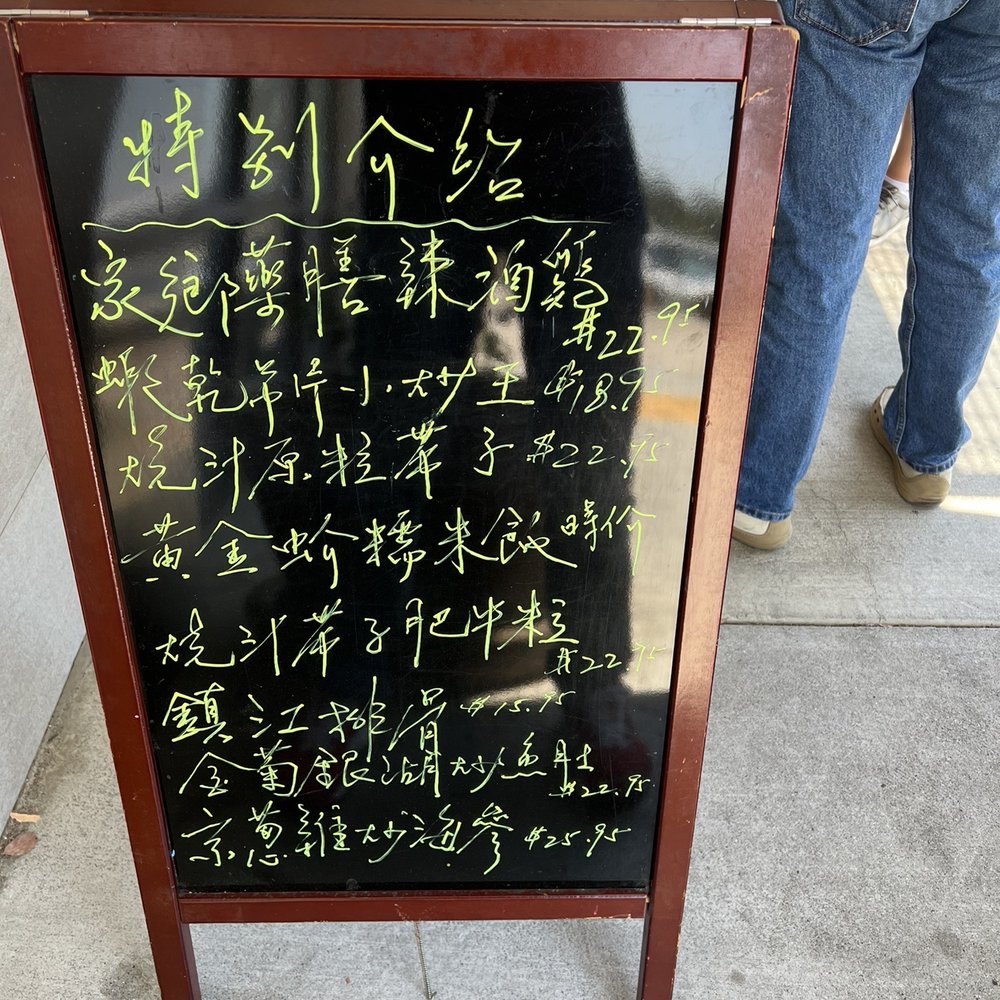 特別介紹
家鄉藥膳辣酒鷄
$22.95
蝦乾吊片小炒王 $18.95
燒汁原粒帶子 $22.95
黃金蚧糯米飯 時价
燒汁帶子肥牛粒
$22.95
鎮江排滑 $15.95
金菊銀湖炒魚肚
$22.95
京葱雞炒海參 $25.95